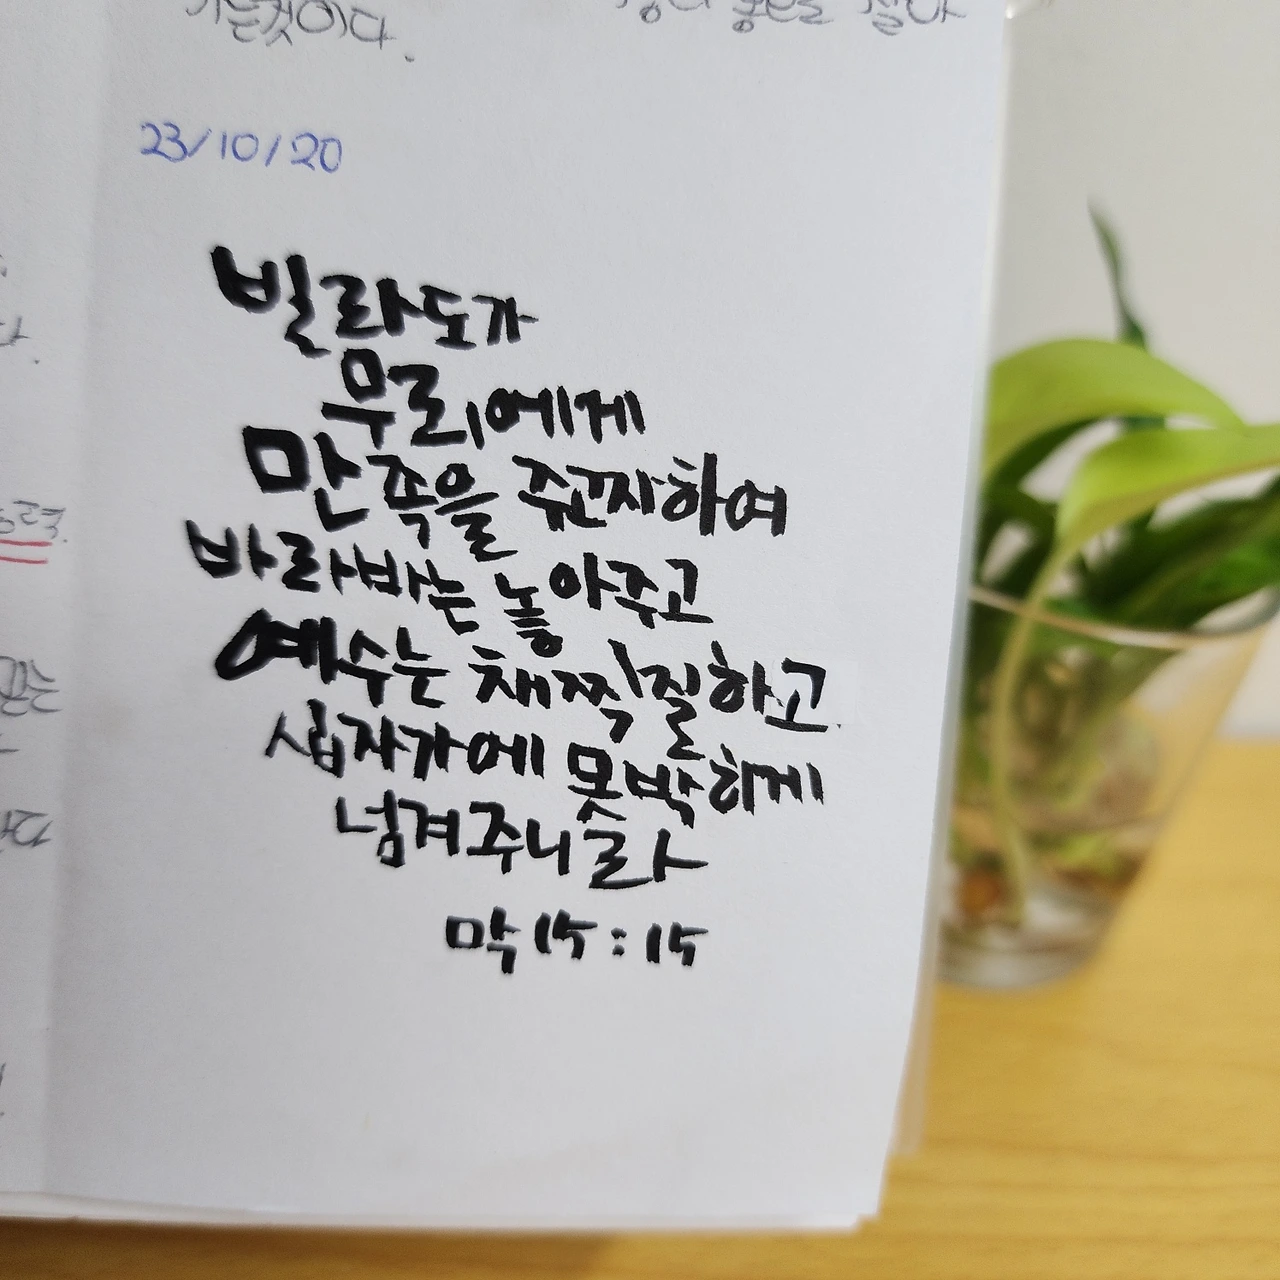 가는것이다.
23/10/20
빌라도가
무리에게
만족을 주고자하여
바라바는 놓아주고
예수는 채찍질하고
십자가에 못박히게
넘겨주니라
막 15:15